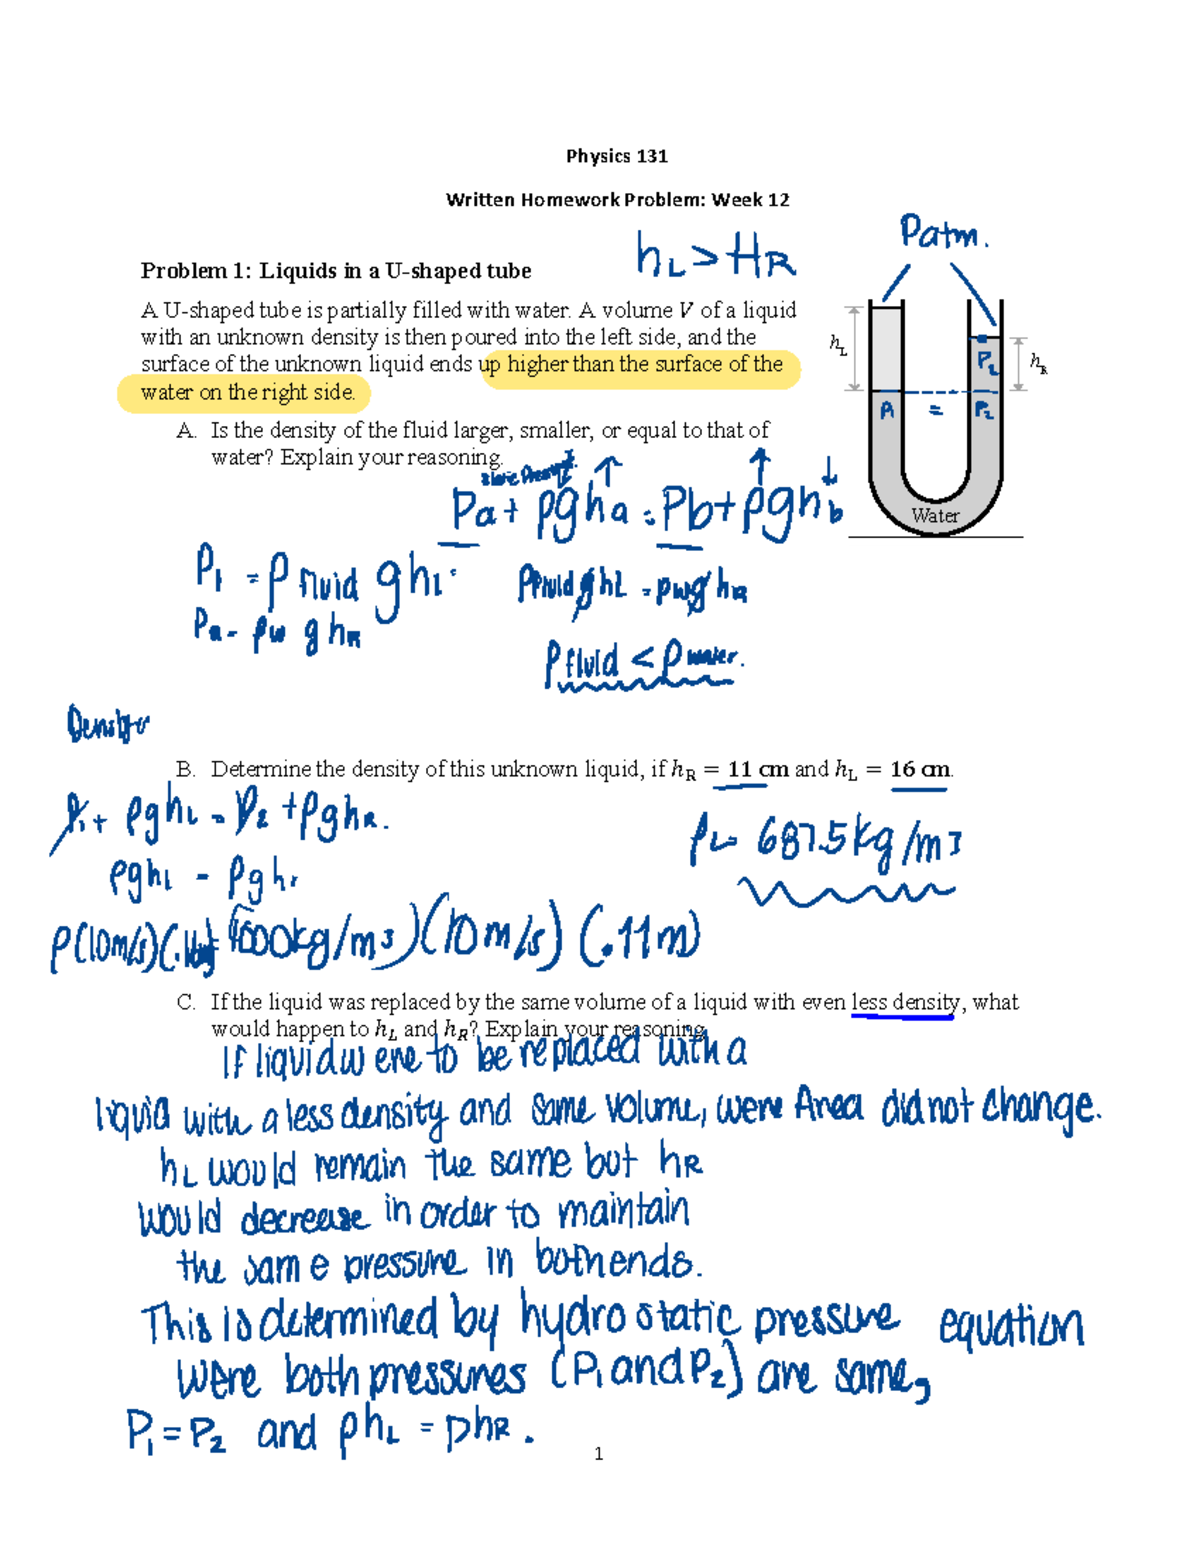 Physics 131
Written Homework Problem: Week 12
hL > HR
Patm.
Problem 1: Liquids in a U-shaped tube
A U-shaped tube is partially filled with water. A volume V of a liquid
with an unknown density is then poured into the left side, and the
surface of the unknown liquid ends up higher than the surface of the
water on the right side.
hL
P2
hR
P1 = P2
Water
A. Is the density of the fluid larger, smaller, or equal to that of
water? Explain your reasoning.
Pa + ρgha = Pb + ρghb
P1 = ρ fluid ghL
ρfluid g hL = ρwg hR
ρw g hR
ρ fluid < ρ water.
Density
B. Determine the density of this unknown liquid, if hR = 11 cm and hL = 16 cm.
P1 + ρghL = P2 + ρghR.
ρL = 687.5kg/m3
ρghL = ρghr
ρ(10m/s)(.16m) = (1000kg/m3)(10m/s)(.11m)
C. If the liquid was replaced by the same volume of a liquid with even less density, what
would happen to hL and hR? Explain your reasoning.
If liquid were to be replaced with a
liquid with a less density and same volume, were Area did not change.
hL would remain the same but hR
would decrease in order to maintain
the same pressure in both ends.
This is determined by hydrostatic pressure equation
were both pressures (P1 and P2) are same,
P1 = P2 and ρhL = ρhR.
1